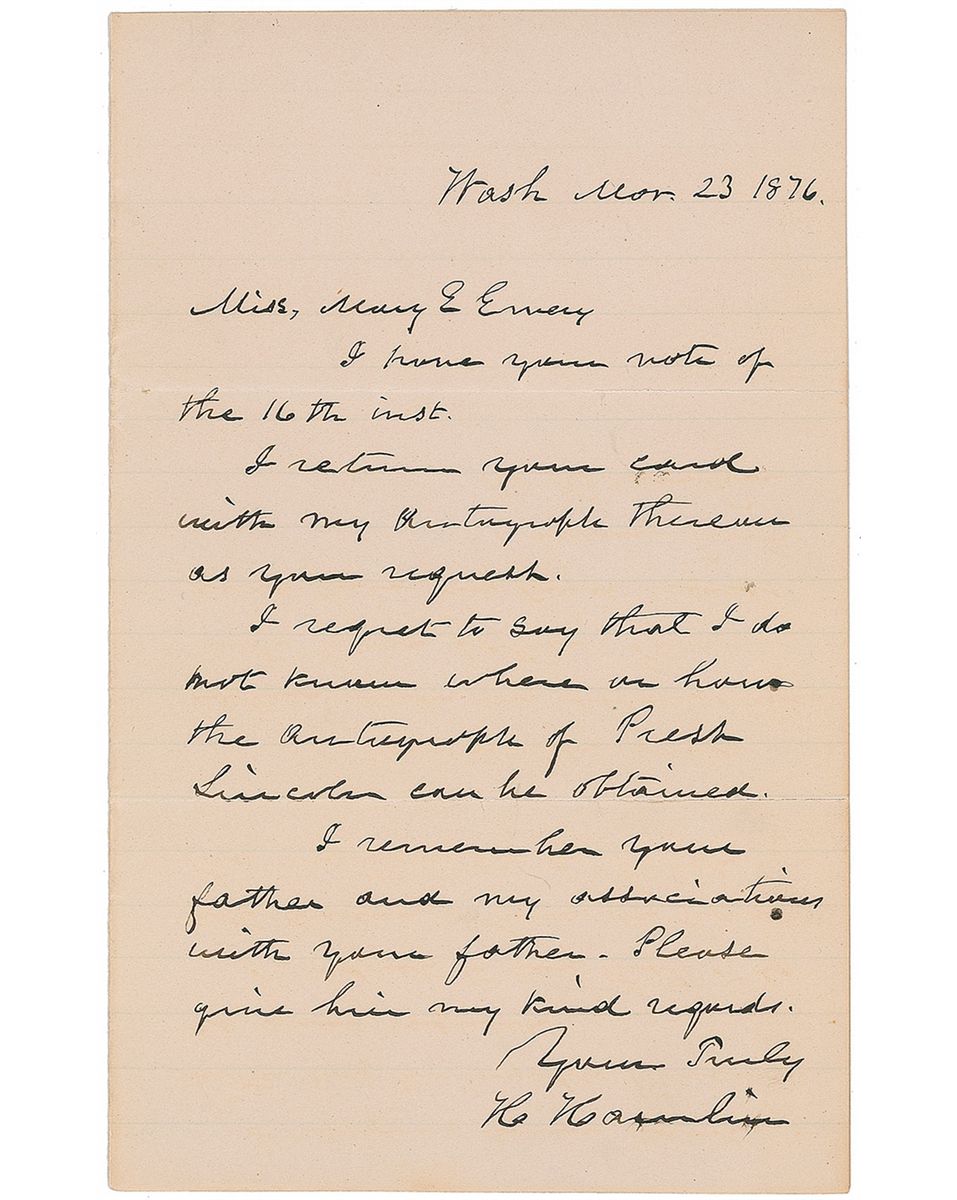 Wash Mar. 23 1876.
Miss, Mary E Emery
I have your note of
the 16th inst.
I return your card
with my Autograph thereon
as you request.
I regret to say that I do
not know where or how
the Autograph of Prest
Lincoln can be obtained.
I remember your
father and my associations
with your father. Please
give him my kind regards.
Yours Truly
H Hamlin